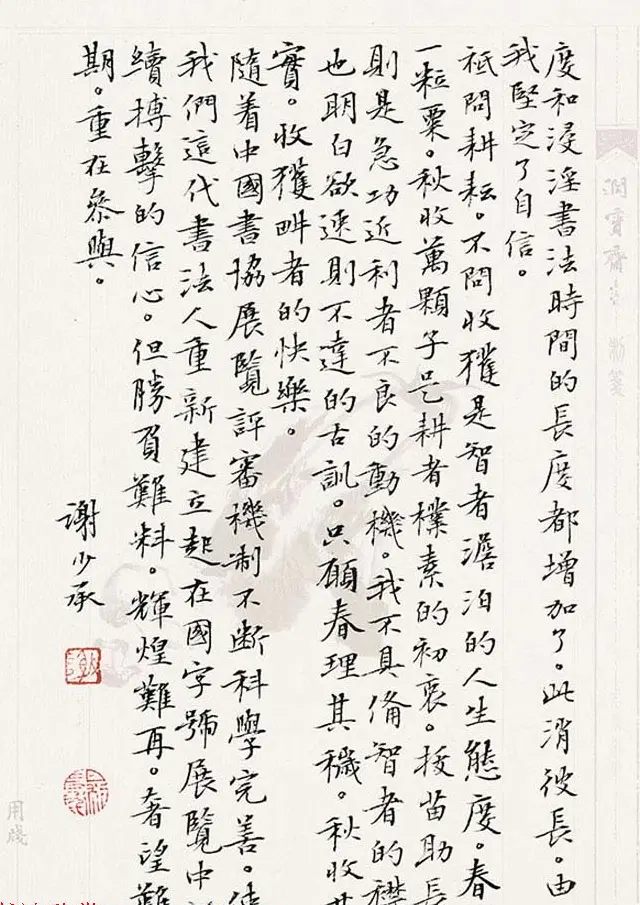 度和浸淫書法時間的長度都增加了。此消彼長。由
我堅定了自信。
祗問耕耘。不問收獲是智者澹泊的人生態度。春
一粒粟。秋收萬顆子是耕者樸素的初衷。拔苗助長
則是急功近利者不良的動機。我不具備智者的襟
也明白欲速則不達的古訓。只願春理其穢。秋收其
實。收獲畊者的快樂。
隨着中國書協展覽評審機制不斷科學完善。使
我們這代書法人重新建立起在國字號展覽中
續搏擊的信心。但勝負難料。輝煌難再。奢望難
期。重在參與。
謝少承
用牋